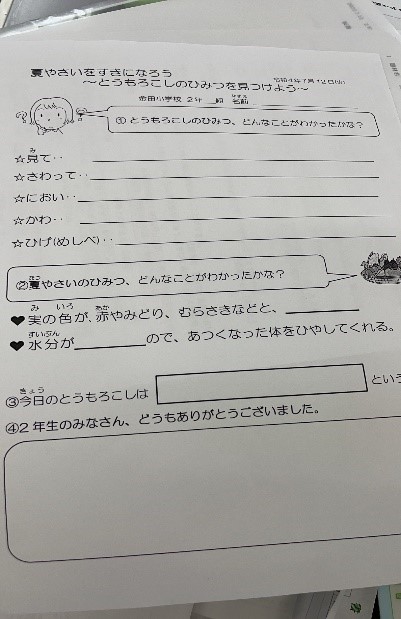 夏やさいをすきになろう
～とうもろこしのひみつを見つけよう～
令和4年7月12日(火)
金田小学校 2年 組 名前
①とうもろこしのひみつ、どんなことがわかったかな？
☆見て‥
☆さわって‥
☆におい‥
☆かわ‥
☆ひげ(めしべ)‥
②夏やさいのひみつ、どんなことがわかったかな？
♥実の色が、赤やみどり、むらさきなどと、
♥水分が ので、あつくなった体をひやしてくれる。
③今日のとうもろこしは とい
④2年生のみなさん、どうもありがとうございました。